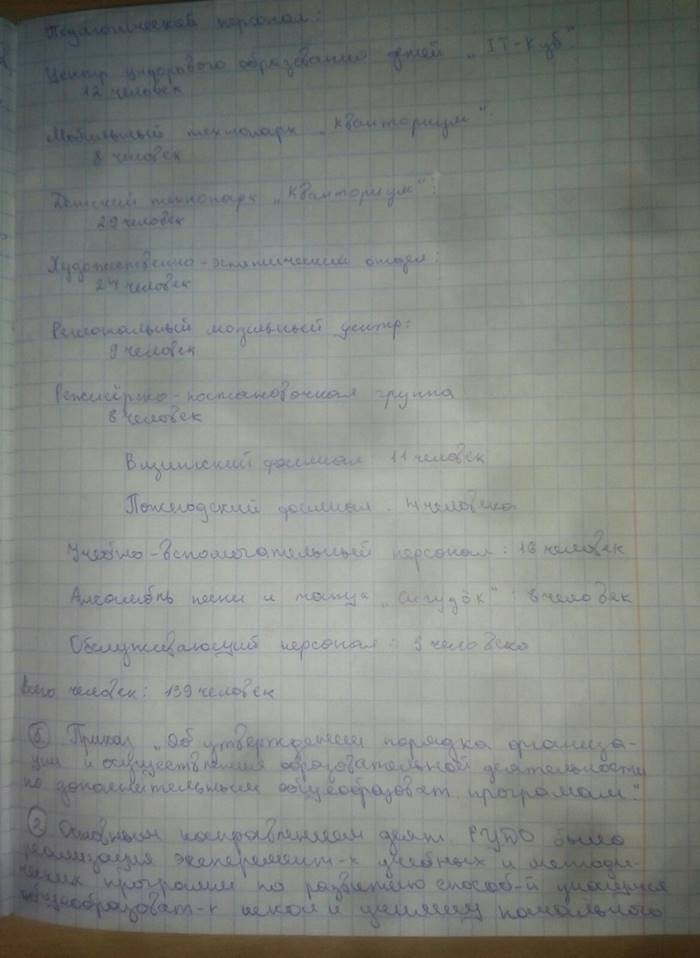 Педагогический персонал:
Центр цифрового образования детей „IT-Куб"
12 человек
Мобильный технопарк „Кванториум"
8 человек
Детский технопарк „Кванториум":
29 человек
Художественно-эстетический отдел:
24 человек
Региональный модельный центр:
9 человек
Режисёрско-постановочная группа
8 человек
филиал 11 человек
филиал. 4 человека
Учебно-вспомогательный персонал: 16 человек
Ансамбль песни и танца „ : 8 человек
Обслуживающий персонал: 3 человека
Всего человек: 139 человек
Приказ „Об утверждении порядка организа-
ции и осуществления образовательной деятельности
по дополнительным общеобразоват. програмам."
② Основным направлением деят. РУДО было
реализация эксперемент-х учебных и методи-
ческих программ по развитию способ-й учащихся
общеобразоват-х школ и училищ начального